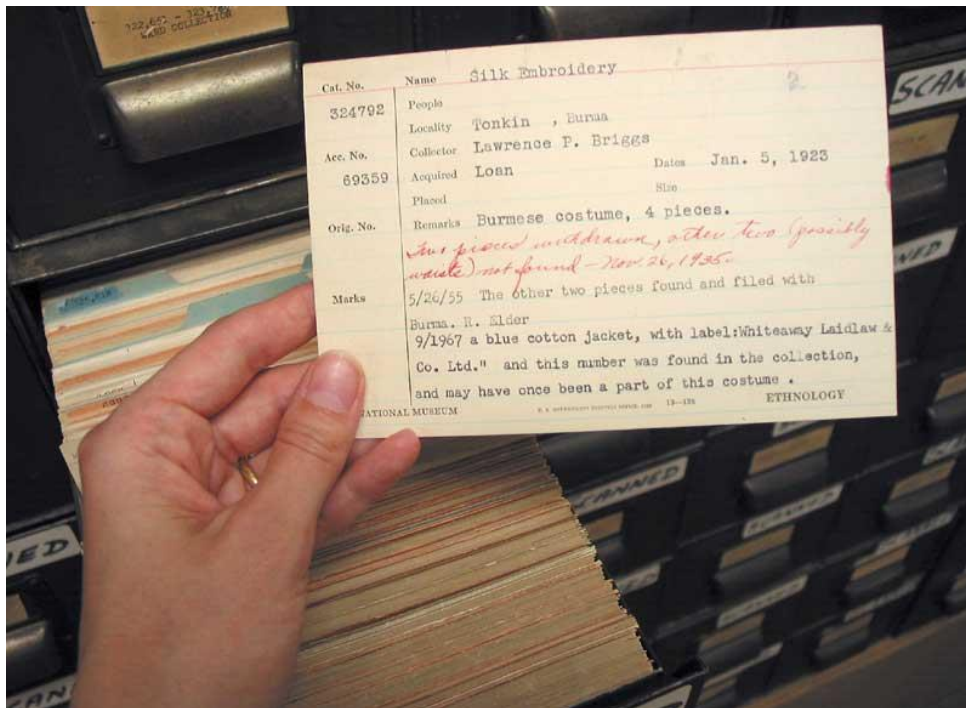 322,667 - 323,749
WARD COLLECTION
SCANNED
Cat. No.
324792
Acc. No.
69359
Orig. No.
Marks
Name Silk Embroidery
People
Locality Tonkin , Burma
Collector Lawrence P. Briggs
Acquired Loan Dates Jan. 5, 1923
Placed Size
Remarks Burmese costume, 4 pieces.
Two pieces withdrawn, other two (possibly
waists) not found - Nov. 26, 1935.
5/26/55 The other two pieces found and filed with
Burma. R. Elder
9/1967 a blue cotton jacket, with label:Whiteaway Laidlaw &
Co. Ltd." and this number was found in the collection,
and may have once been a part of this costume .
NATIONAL MUSEUM ETHNOLOGY
SCANNED